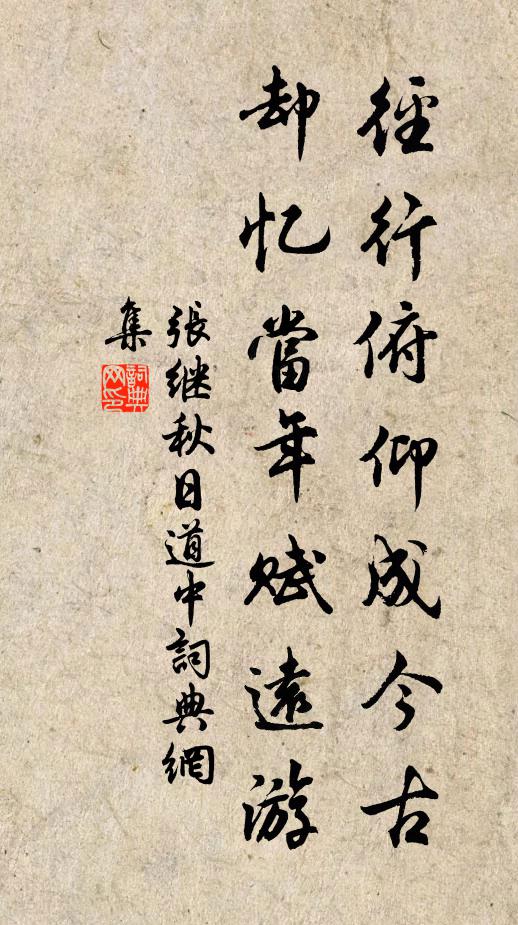 徑行俯仰成今古
却忆當年赋遠游
張继秋日道中詞典網
集
詞典網印